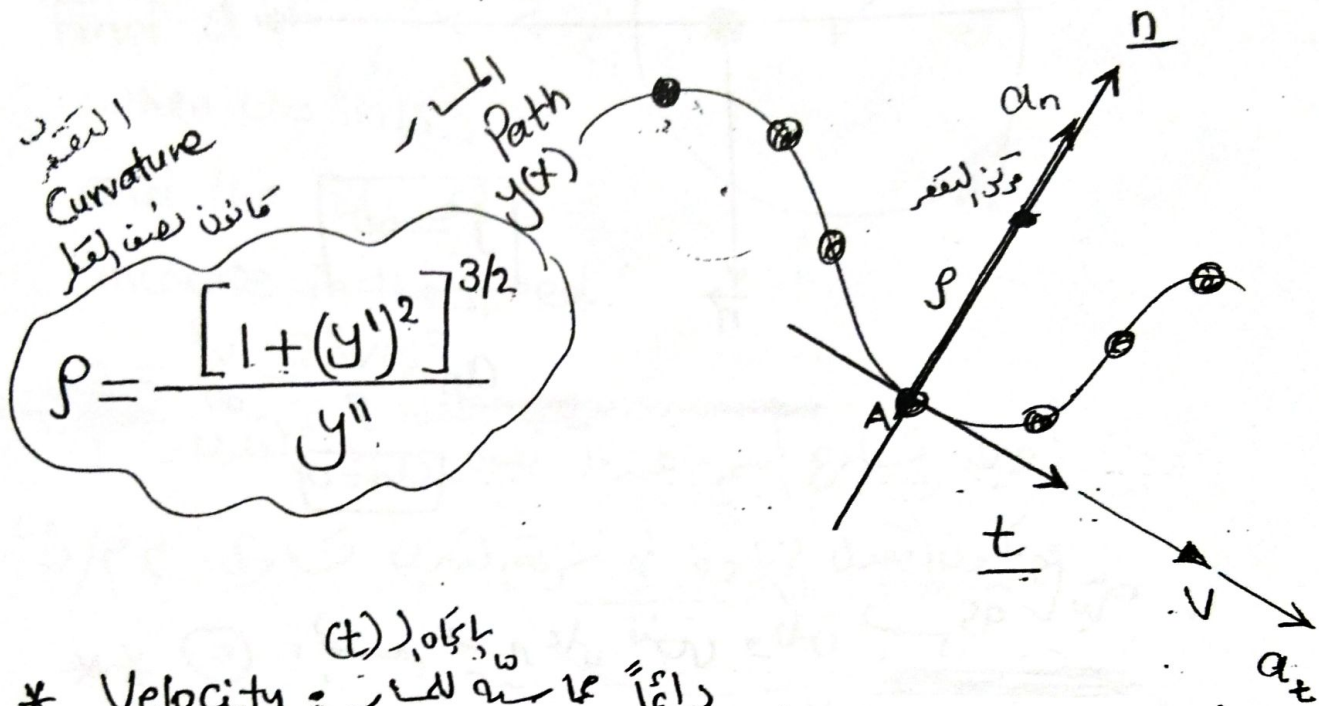 التقعر
Curvature
قانون نصف القطر
المسار
Path
y(x)
ρ = [1 + (y')²]^3/2 / y''
n
an
مركز التقعر
ρ
A
t
V
at
باتجاه ال (t)
* Velocity : دائماً مماسية للمسار